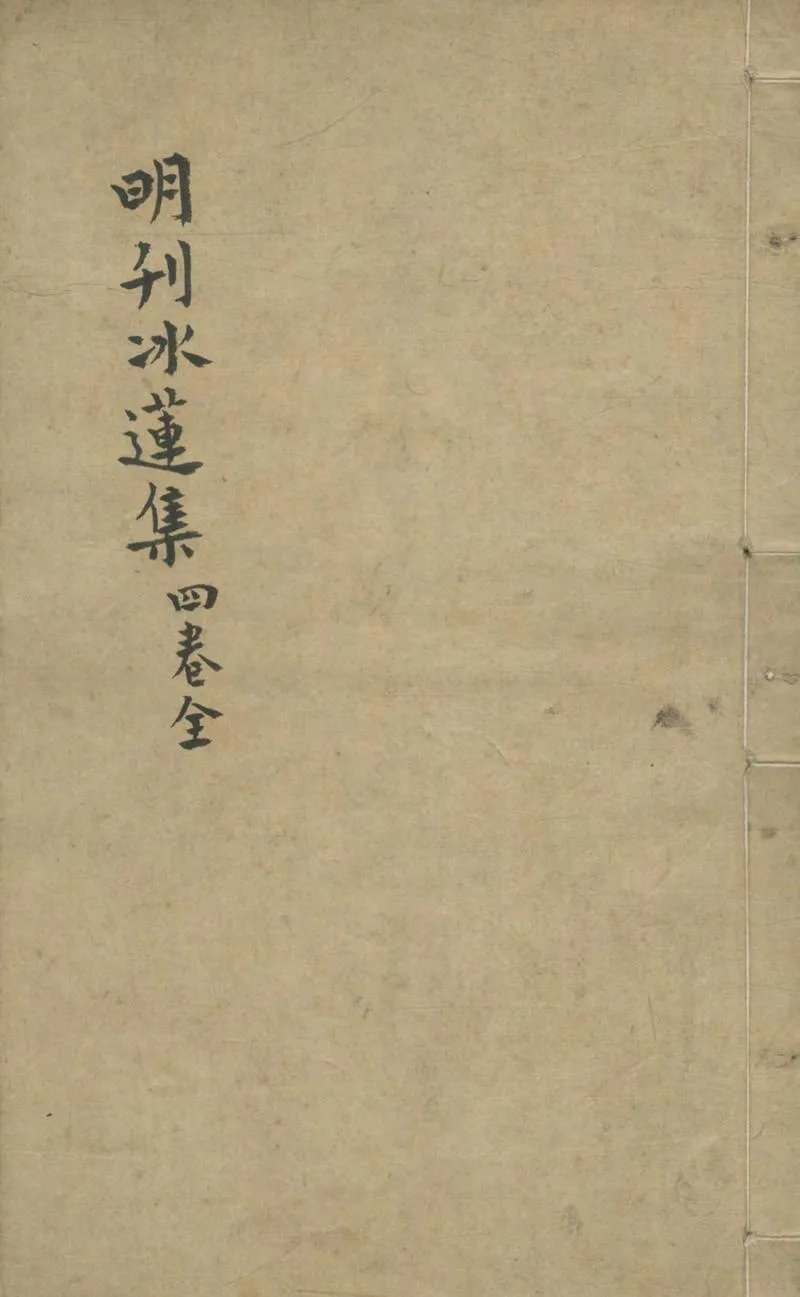 明刊冰蓮集
四卷全